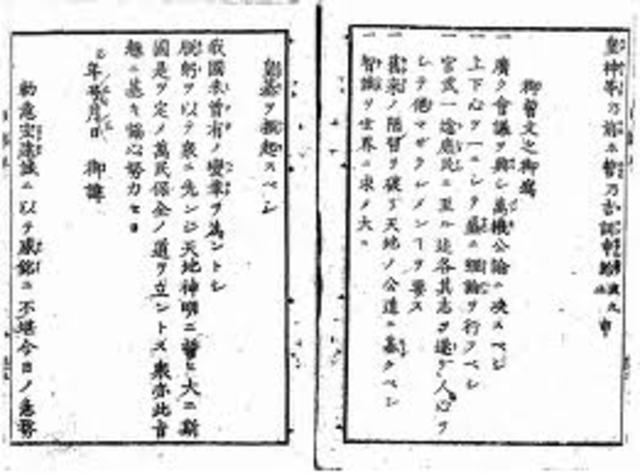 皇神等乃 誓乃吉詞申給
御誓文之御寫
一 廣ク會議ヲ興シ萬機公論ニ決スベシ
一 上下心ヲ一ニシテ盛ニ經綸ヲ行フベシ
一 官武一途庶民ニ至ル迄各其志ヲ遂ゲ人心ヲ
シテ倦マザラシメンヿヲ要ス
一 舊來ノ陋習ヲ破リ天地ノ公道ニ基クベシ
一 智識ヲ世界ニ求メ大ニ
皇基ヲ振起スベシ
我國未曾有ノ變革ヲ為ントシ
朕躬ヲ以テ衆ニ先ンジ天地神明ニ誓ヒ大ニ斯
國是ヲ定メ萬民保全ノ道ヲ立ントス衆亦此旨
趣ニ基キ協心努力セヨ
年號月日 御諱
勅意宏遠誠ニ以テ感銘ニ不堪今日ノ急務